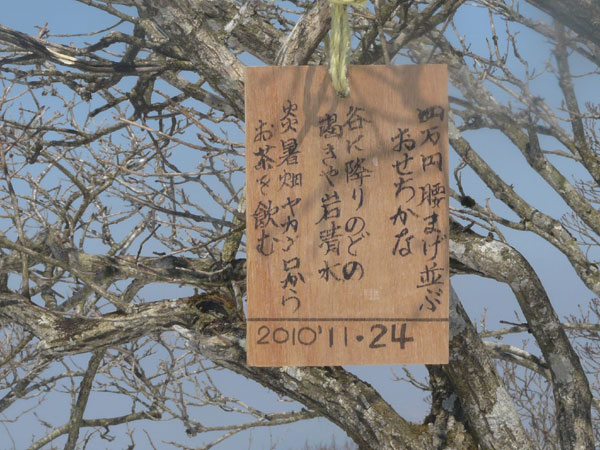 四万円腰まげ並ぶ
おせちかな
谷に降りのどの
渇きや岩清水
炎暑畑ヤカン口から
お茶を飲む
2010'11・24